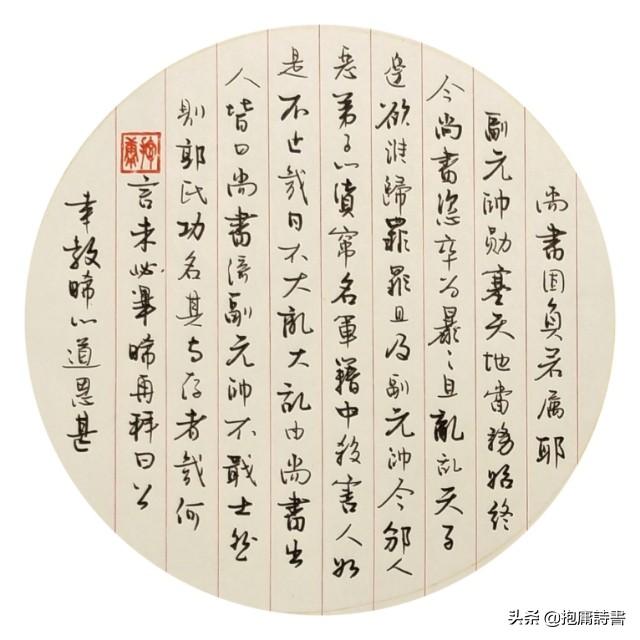 尚書固負若屬耶
副元帥勛塞天地當務始終
今尚書恣卒为暴〻且亂乱天子
邊欲誰歸罪罪且及副元帥今邠人
惡弟子以貨竄名軍籍中殺害人如
是不止幾日不大亂大乱由尚書出
人皆曰尚書倚副元帥不戢士然
則郭氏功名其与存者幾何
言未必畢晞再拜曰公
幸教晞以道恩甚
抱庸
头条 @抱庸詩書